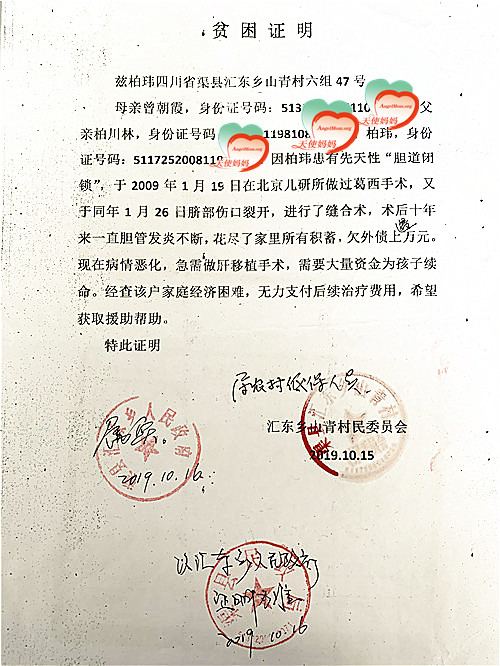 贫困证明
兹柏玮四川省渠县汇东乡山青村六组 47 号
母亲曾朝霞，身份证号码：513 110 父
亲柏川林，身份证号码 1198108 柏玮，身份
证号码：5117252008119 因柏玮患有先天性“胆道闭
锁”，于 2009 年 1 月 19 日在北京儿研所做过葛西手术，又
于同年 1 月 26 日脐部伤口裂开，进行了缝合术，术后十年
来一直胆管发炎不断，花尽了家里所有积蓄，欠外债上万元。
现在病情恶化，急需做肝移植手术，需要大量资金为孩子续
命。经查该户家庭经济困难，无力支付后续治疗费用，希望
获取援助帮助。
特此证明
AngelMom.org
天使妈妈
AngelMom.org
天使妈妈
AngelMom.org
天使妈妈
属农村低保人员.
汇东乡山青村民委员会
2019.10.15
属实.
2019.10.16
乡人民政府
以汇东乡人民政府
证明为准
2019 10 16